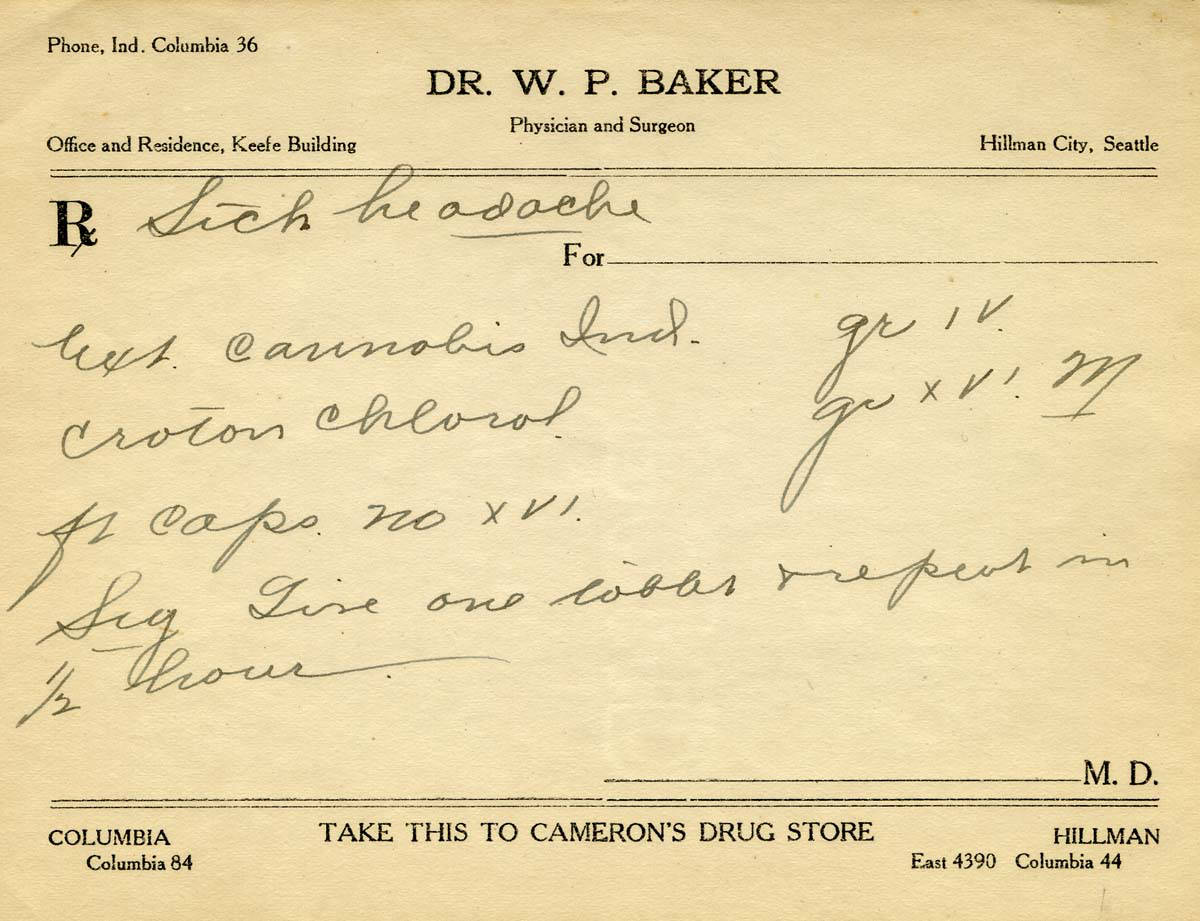 Phone, Ind. Columbia 36
DR. W. P. BAKER
Physician and Surgeon
Office and Residence, Keefe Building
Hillman City, Seattle
Rx Sick headache
For
Ext. Cannabis Ind. gr IV.
Croton Chloral gr XVI. M
ft caps. no XVI.
Sig Give one tablet & repeat in
1/2 hour
M. D.
COLUMBIA TAKE THIS TO CAMERON'S DRUG STORE HILLMAN
Columbia 84 East 4390 Columbia 44